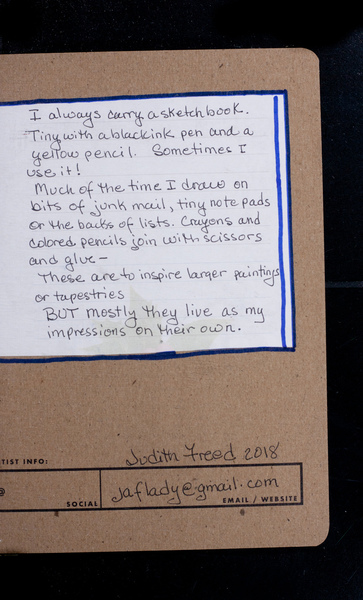 I always carry a sketchbook.
Tiny with a black ink pen and a
yellow pencil. Sometimes I
use it!
Much of the time I draw on
bits of junk mail, tiny note pads
or the backs of lists. Crayons and
colored pencils join with scissors
and glue—
These are to inspire larger paintings
or tapestries
BUT mostly they live as my
impressions on their own.
Judith Freed 2018
TIST INFO:
@
SOCIAL
jaflady@gmail.com
EMAIL / WEBSITE